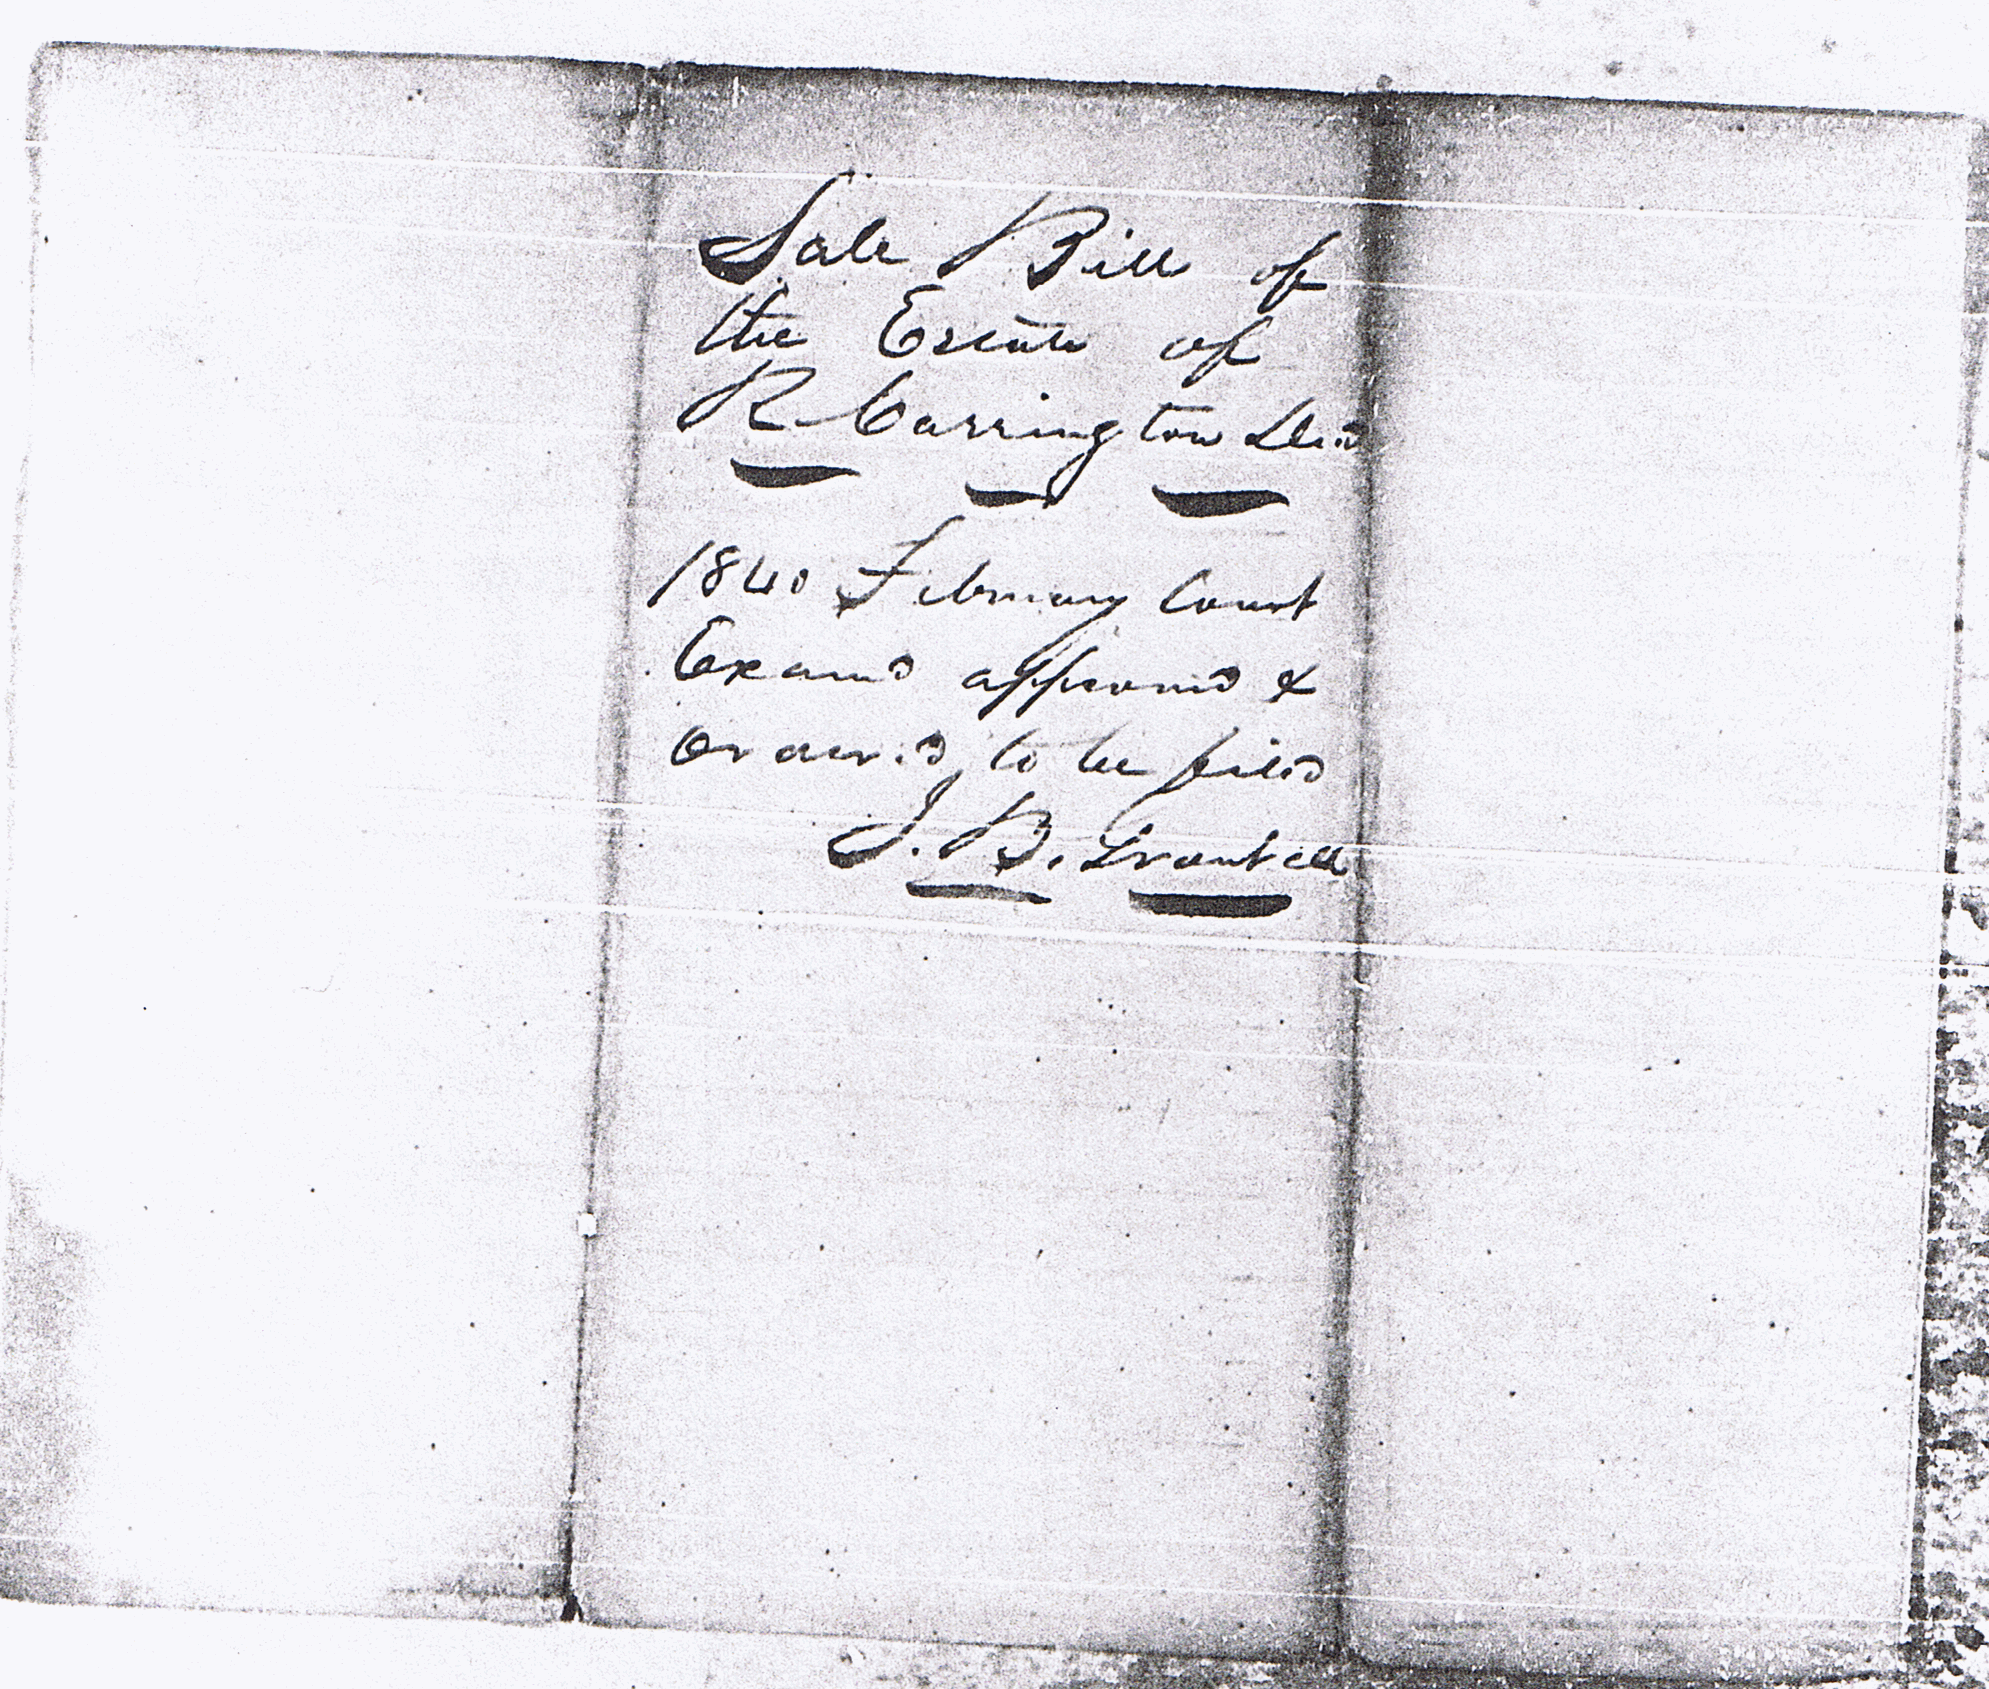 Sale Bill of
the Estate of
R Carrington Decd
1840 February Court
Examd approved &
Ordered to be filed
J. B.